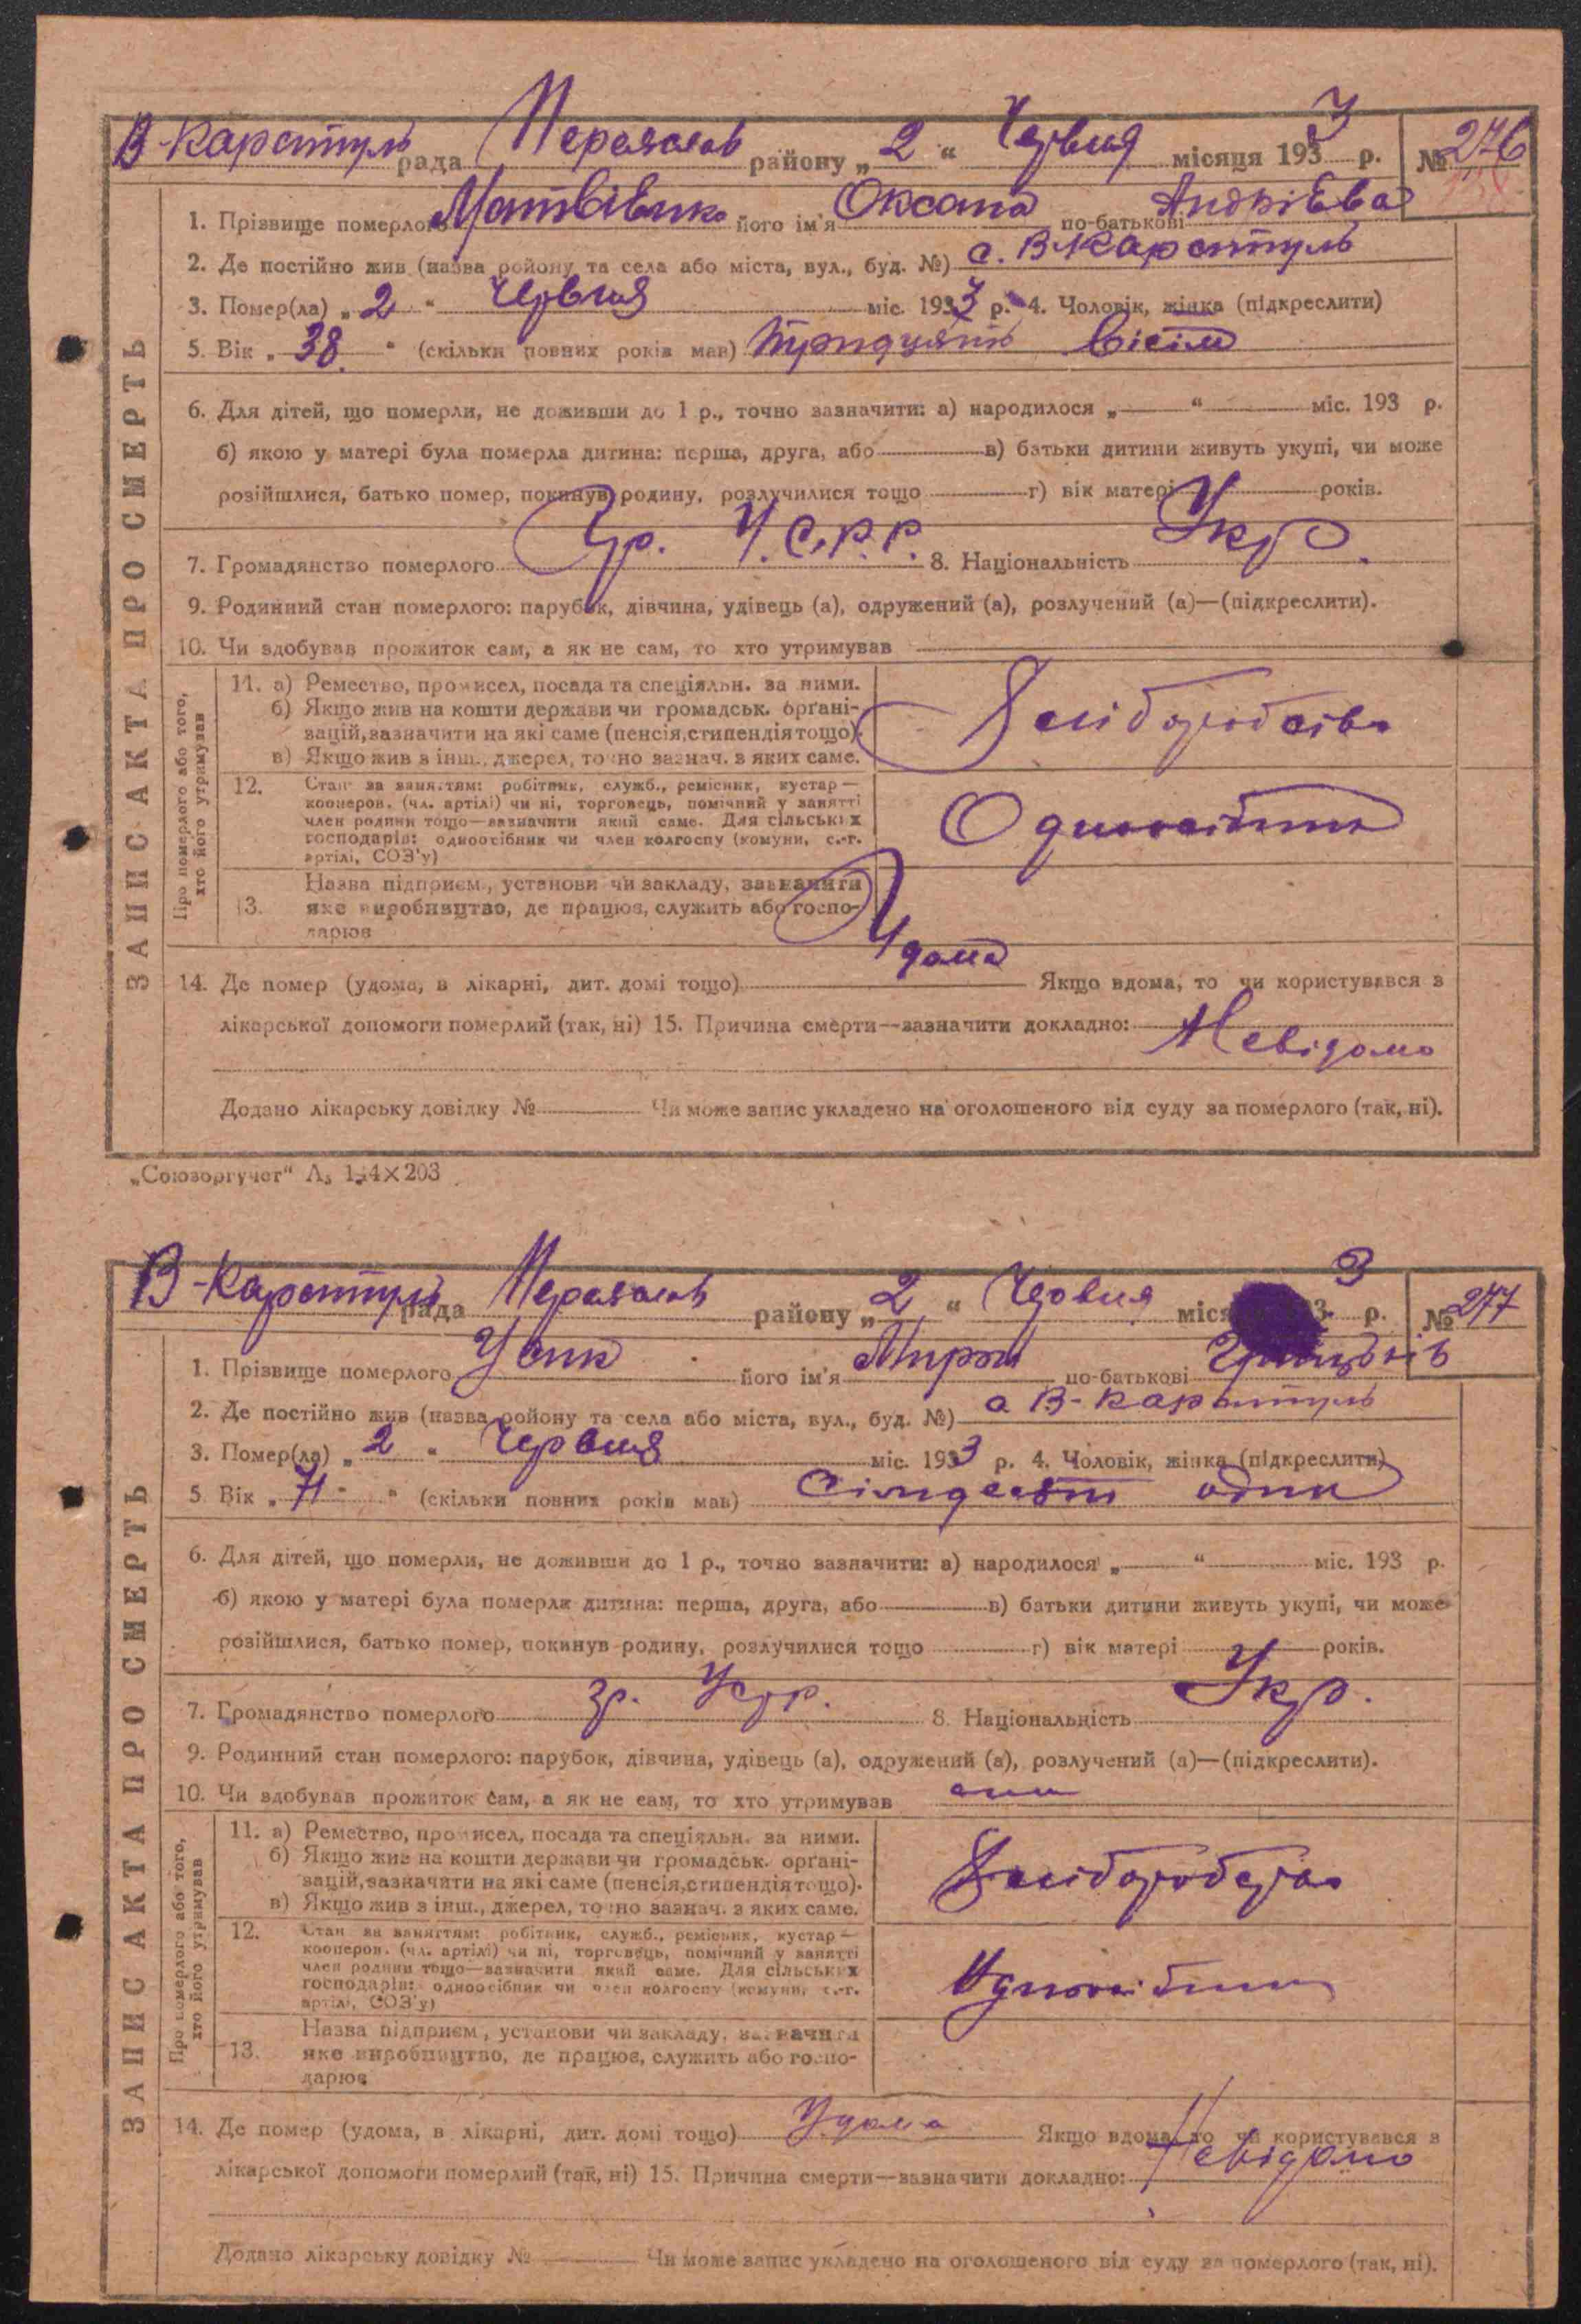 В-Каратуль рада Переяслав району „ 2 “ Червня місяця 1933 р. № 276
1. Прізвище померлого Матвієнко його ім'я Оксана по-батькові Андрієва
2. Де постійно жив (назва ройону та села або міста, вул., буд. №) с. В Каратуль
3. Помер(ла) „ 2 “ Червня міс. 1933 р. 4. Чоловік, жінка (підкреслити)
5. Вік „ 38 “ (скільки повних років мав) тридцять вісім
6. Для дітей, що померли, не доживши до 1 р., точно зазначити: а) народилося „ “ міс. 193 р.
б) якою у матері була померла дитина: перша, друга, або в) батьки дитини живуть укупі, чи може
розійшлися, батько помер, покинув родину, розлучилися тощо г) вік матері років.
7. Громадянство померлого Гр. У.С.Р.Р. 8. Національність Укр.
9. Родинний стан померлого: парубок, дівчина, удівець (а), одружений (а), розлучений (а)—(підкреслити).
10. Чи здобував прожиток сам, а як не сам, то хто утримував
ЗАПИС АКТА ПРО СМЕРТЬ
Про померлого або того, хто його утримував
11. а) Ремество, промисел, посада та спеціяльн. за ними.
б) Якщо жив на кошти держави чи громадськ. органі-
зацій, зазначити на які саме (пенсія, стипендія тощо).
в) Якщо жив з інш., джерел, точно зазнач. з яких саме.
12. Стан за заняттям: робітник, служб., ремісник, кустар—
кооперов. (чл. артілі) чи ні, торговець, помічний у занятті
член родини тощо—зазначити який саме. Для сільських
господарів: одноосібник чи член колгоспу (комуни, с.-г.
артілі, СОЗ'у)
Одноосібник
13. Назва підприєм., установи чи закладу, зазначити
яке виробництво, де працює, служить або госпо-
дарює
14. Де помер (удома, в лікарні, дит. домі тощо) Удома Якщо вдома, то чи користувався з
лікарської допомоги померлий (так, ні) 15. Причина смерти—зазначити докладно: Невідомо
Додано лікарську довідку № Чи може запис укладено на оголошеного від суду за померлого (так, ні).
„Союзоргучет“ А₅ 144×203
В-Каратуль рада Переяслав району „ 2 “ Червня 3 р. № 277
1. Прізвище померлого Усик його ім'я по-батькові
2. Де постійно жив (назва ройону та села або міста, вул., буд. №) с В-Каратуль
3. Помер(ла) „ 2 “ Червня міс. 1933 р. 4. Чоловік, жінка (підкреслити)
5. Вік „ 71 “ (скільки повних років мав) Сімдесят один
6. Для дітей, що померли, не доживши до 1 р., точно зазначити: а) народилося „ “ міс. 193 р.
б) якою у матері була померла дитина: перша, друга, або в) батьки дитини живуть укупі, чи може
розійшлися, батько помер, покинув родину, розлучилися тощо г) вік матері років.
7. Громадянство померлого гр. УСРР. 8. Національність Укр.
9. Родинний стан померлого: парубок, дівчина, удівець (а), одружений (а), розлучений (а)—(підкреслити).
10. Чи здобував прожиток сам, а як не сам, то хто утримував сам
ЗАПИС АКТА ПРО СМЕРТЬ
Про померлого або того, хто його утримував
11. а) Ремество, промисел, посада та спеціяльн. за ними.
б) Якщо жив на кошти держави чи громадськ. органі-
зацій, зазначити на які саме (пенсія, стипендія тощо).
в) Якщо жив з інш., джерел, точно зазнач. з яких саме.
12. Стан за заняттям: робітник, служб., ремісник, кустар—
кооперов. (чл. артілі) чи ні, торговець, помічний у занятті
член родини тощо—зазначити який саме. Для сільських
господарів: одноосібник чи член колгоспу (комуни, с.-г.
артілі, СОЗ'у)
Одноосібник
13. Назва підприєм., установи чи закладу, зазначити
яке виробництво, де працює, служить або госпо-
дарює
14. Де помер (удома, в лікарні, дит. домі тощо) Удома Якщо вдома, то чи користувався з
лікарської допомоги померлий (так, ні) 15. Причина смерти—зазначити докладно: Невідомо
Додано лікарську довідку № Чи може запис укладено на оголошеного від суду за померлого (так, ні).